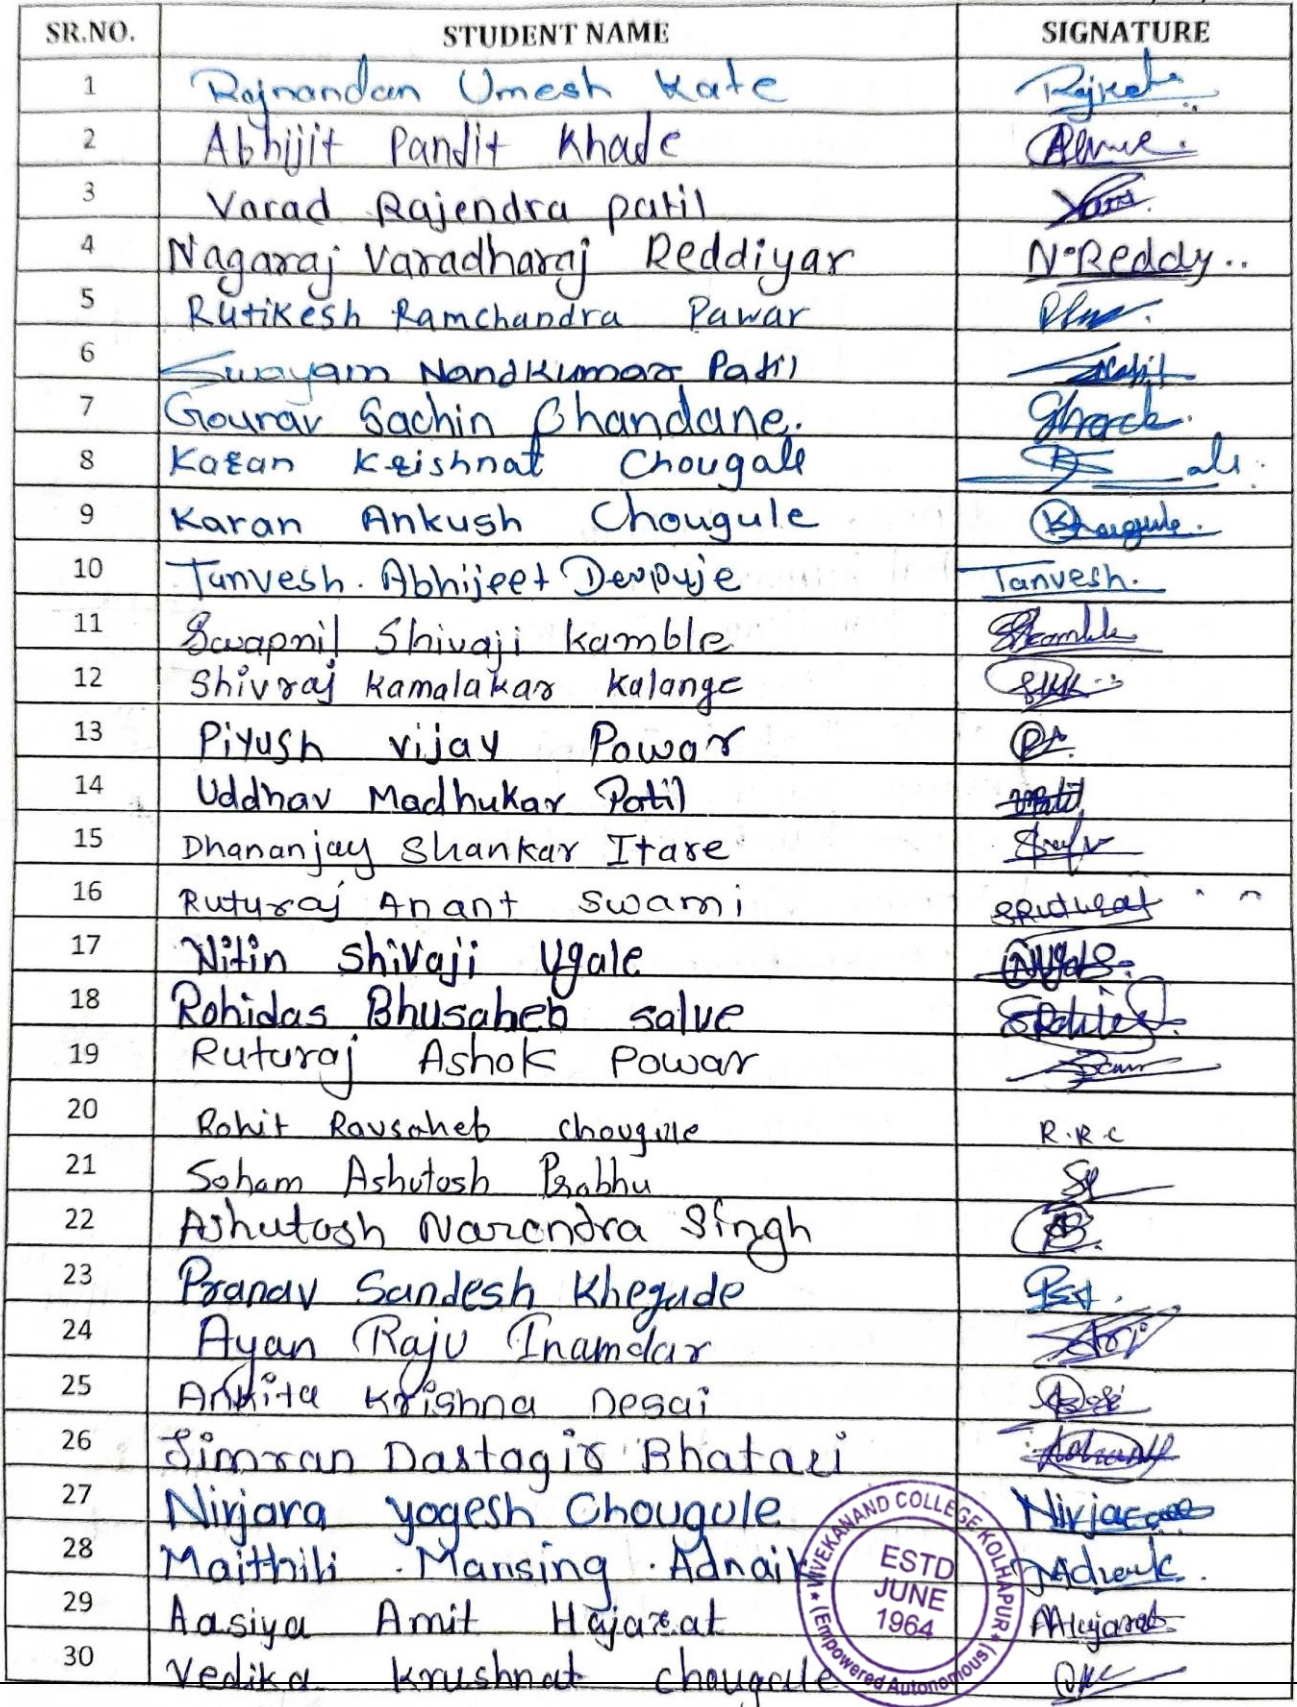 SR.NO. STUDENT NAME SIGNATURE
1 Rajnandan Umesh Kate
2 Abhijit Pandit Khade
3 Varad Rajendra Patil
4 Nagaraj Varadharaj Reddiyar N.Reddy..
5 Rutikesh Ramchandra Pawar
6 Swayam Nandkumar Patil
7 Gourav Sachin Bhandane.
8 Karan Krishnat Chougale
9 Karan Ankush Chougule
10 Tanvesh. Abhijeet Devpuje Tanvesh.
11 Swapnil Shivaji Kamble
12 Shivraj Kamalakar Kalange
13 Piyush vijay Powar
14 Uddhav Madhukar Patil
15 Dhananjay Shankar Itare
16 Ruturaj Anant Swami
17 Nitin Shivaji Ugale
18 Rohidas Bhusaheb salve
19 Ruturaj Ashok Powar
20 Rohit Ravsaheb chougule R.R.C
21 Soham Ashutosh Prabhu
22 Ashutosh Narendra Singh
23 Pranav Sandesh Khegade
24 Ayan Raju Inamdar
25 Ankita Krishna Desai
26 Simran Dastagir Bhatari
27 Nirjara yogesh Chougule
28 Maithili . Mansing . Adnaik
29 Aasiya Amit Hajarat
30 Vedika Krushnat chougule
VIVEKANAND COLLEGE KOLHAPUR
(Empowered Autonomous)
ESTD
JUNE
1964